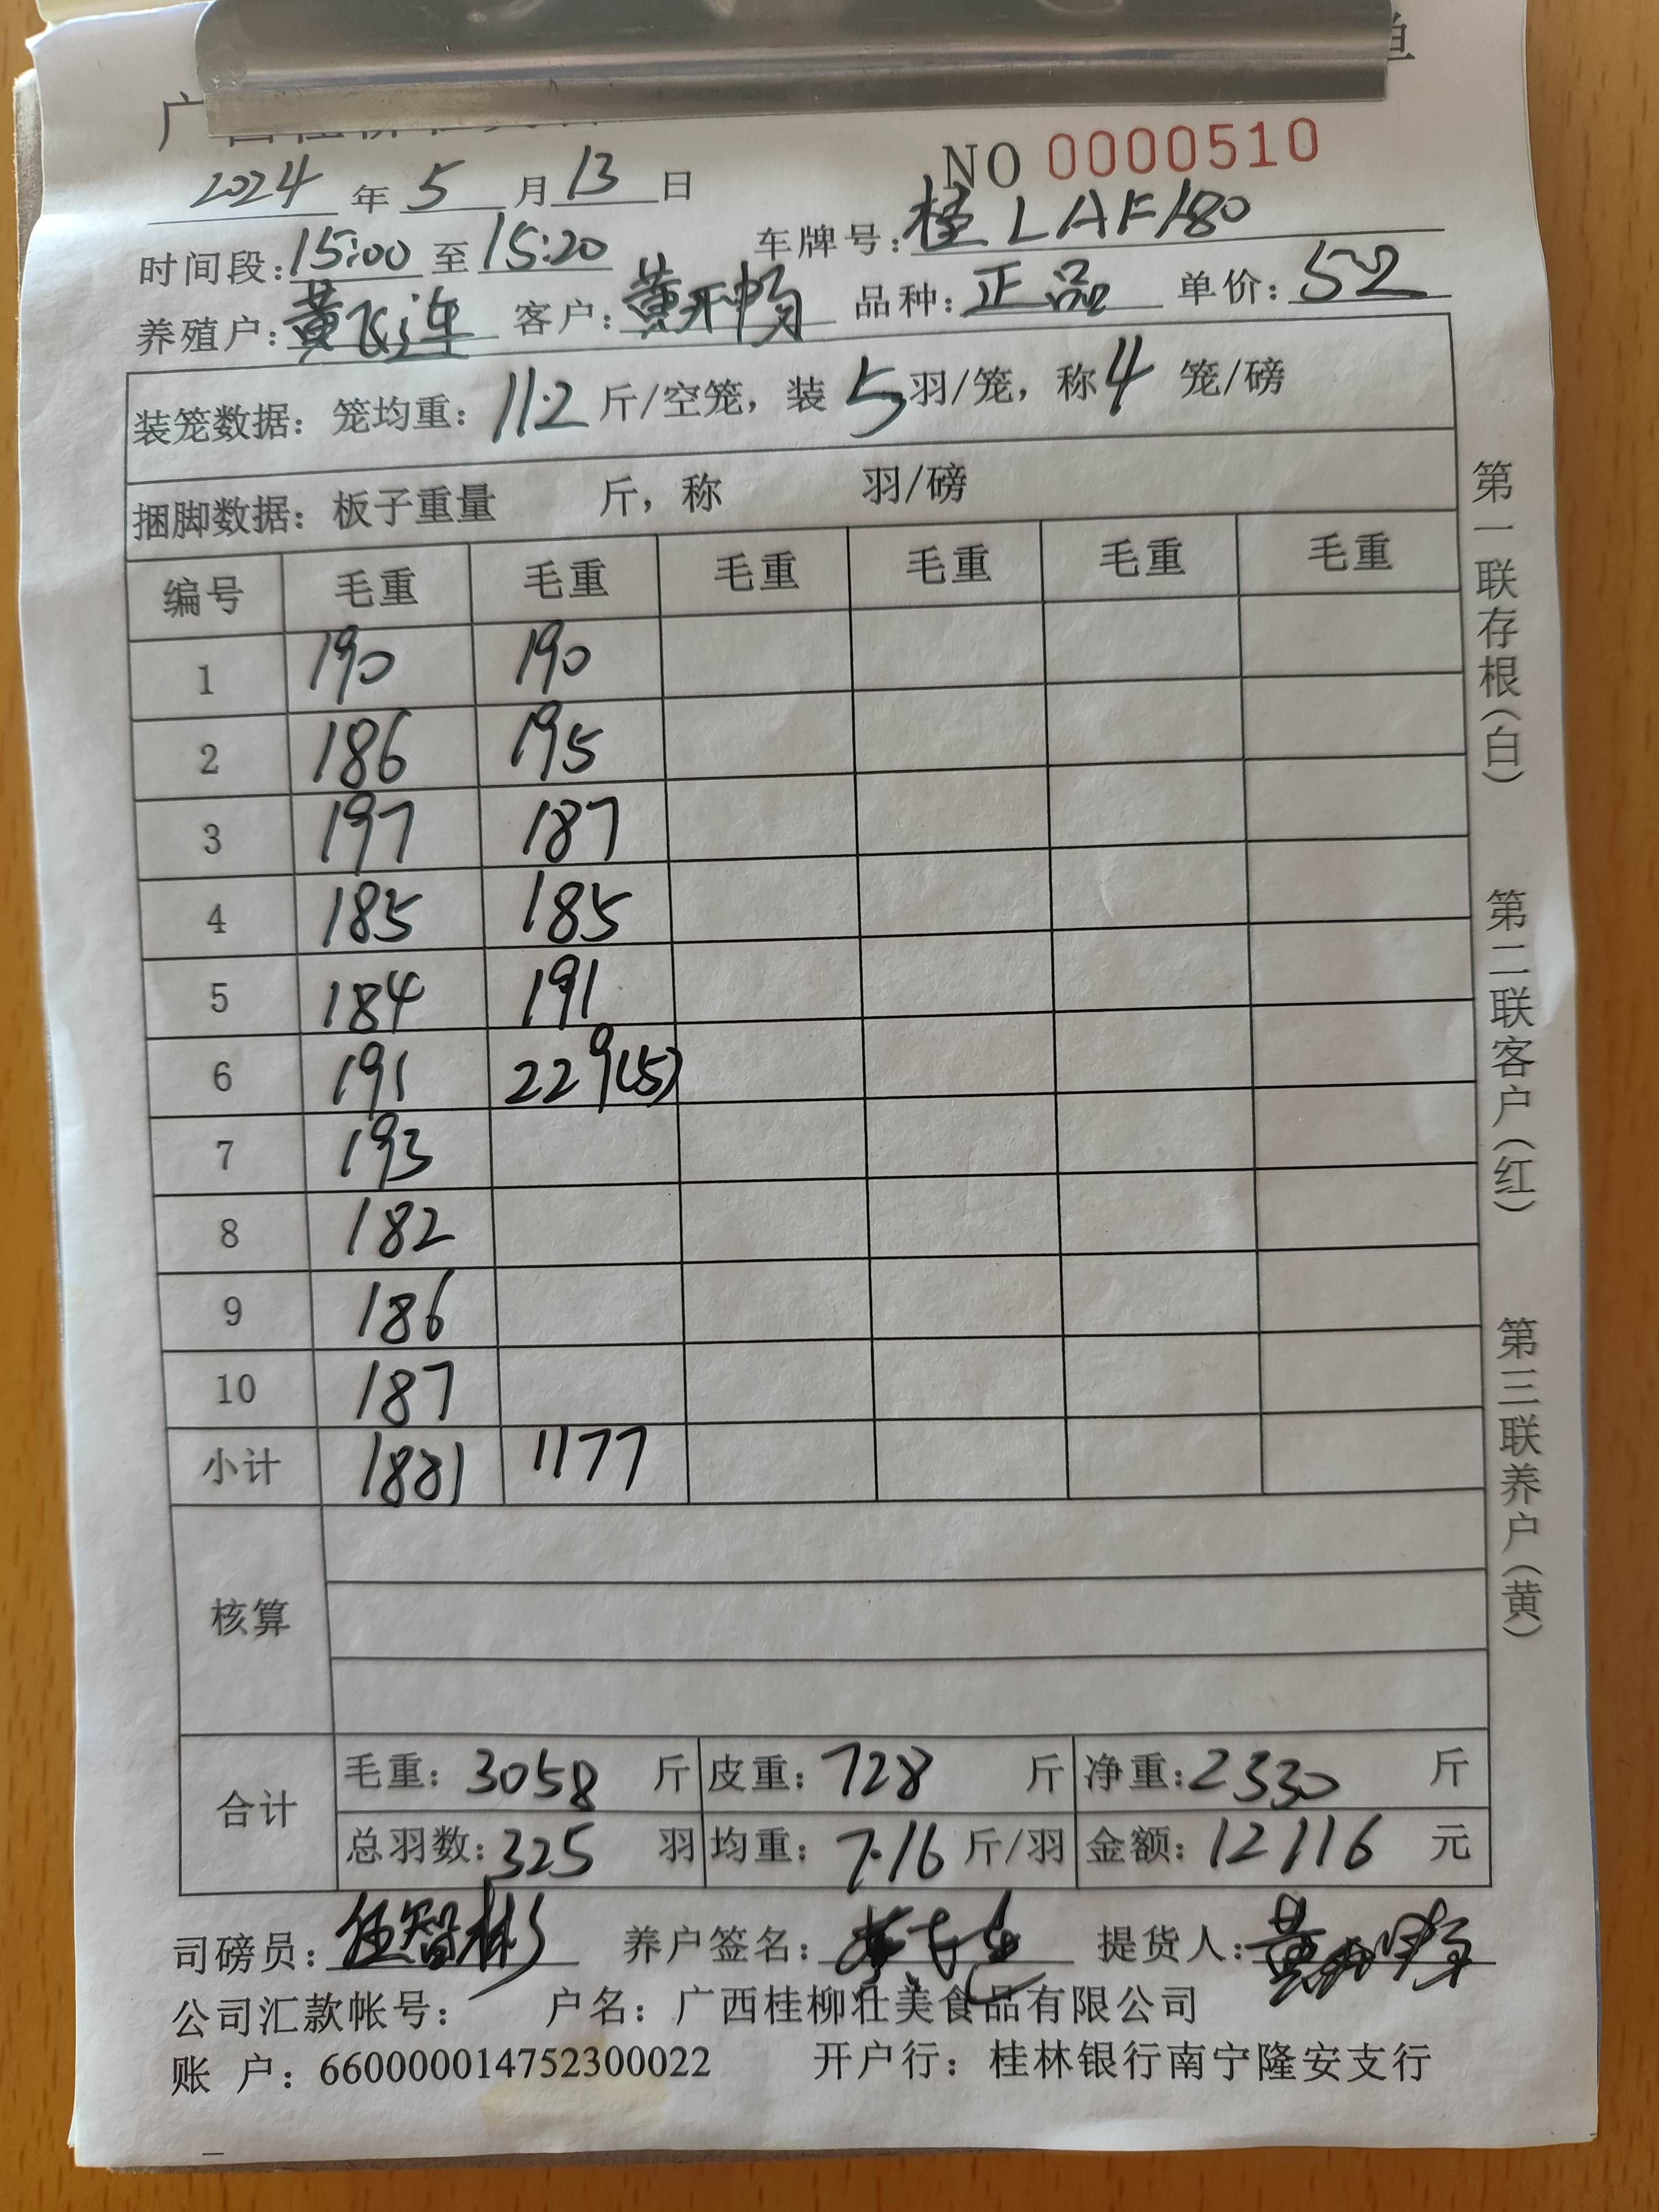 单
NO 0000510
2024 年 5 月 13 日
时间段: 15:00 至 15:20 车牌号: 桂LAF180
养殖户: 黄飞连 客户: 黄开畅 品种: 正品 单价: 52
装笼数据: 笼均重: 11.2 斤/空笼, 装 5 羽/笼, 称 4 笼/磅
捆脚数据: 板子重量 斤, 称 羽/磅
编号 毛重 毛重 毛重 毛重 毛重 毛重
1 190 190
2 186 195
3 197 187
4 185 185
5 184 191
6 191 229(5)
7 193
8 182
9 186
10 187
小计 1881 1177
核算
合计
毛重: 3058 斤 皮重: 728 斤 净重: 2330 斤
总羽数: 325 羽 均重: 7.16 斤/羽 金额: 12116 元
司磅员: 伍智彬 养户签名: 提货人: 黄开畅
公司汇款帐号: 户名: 广西桂柳壮美食品有限公司
账 户: 660000014752300022 开户行: 桂林银行南宁隆安支行
第一联存根(白)
第二联客户(红)
第三联养户(黄)